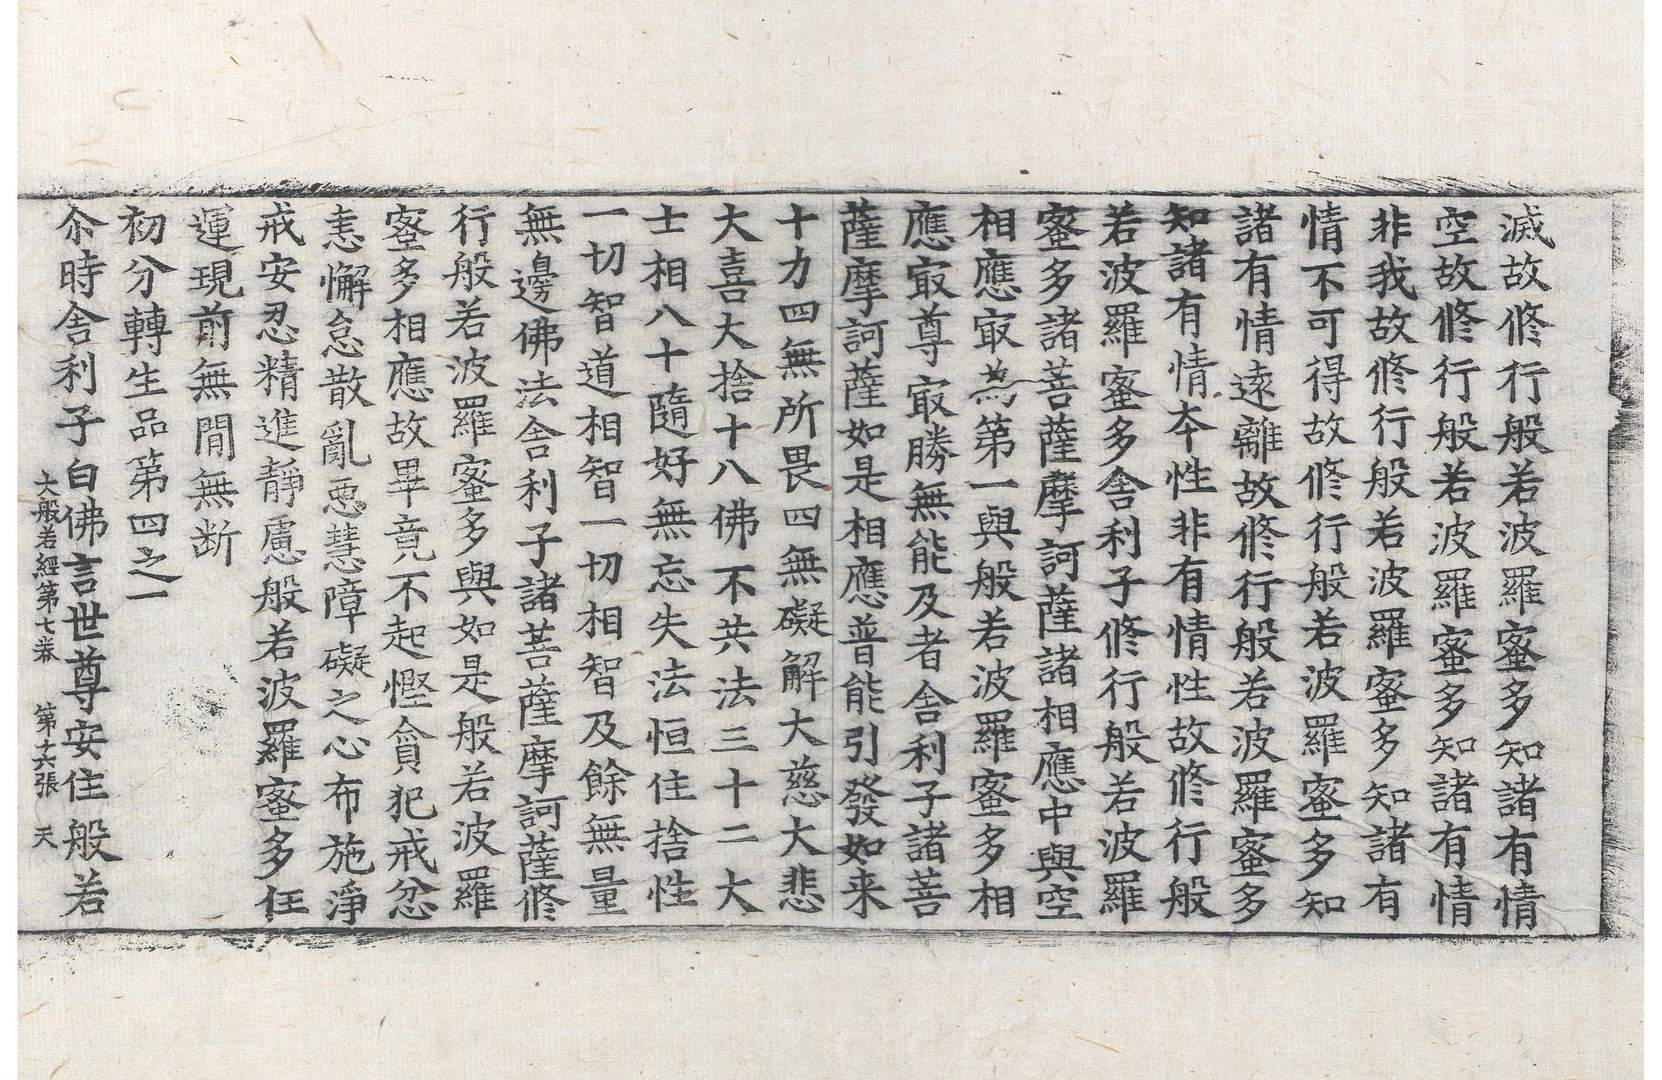 滅故修行般若波羅蜜多知諸有情
空故修行般若波羅蜜多知諸有情
非我故修行般若波羅蜜多知諸有
情不可得故修行般若波羅蜜多知
諸有情遠離故修行般若波羅蜜多
知諸有情本性非有情性故修行般
若波羅蜜多舍利子修行般若波羅
蜜多諸菩薩摩訶薩諸相應中與空
相應㝡為第一與般若波羅蜜多相
應㝡尊㝡勝無能及者舍利子諸菩
薩摩訶薩如是相應普能引發如来
十力四無所畏四無礙解大慈大悲
大喜大捨十八佛不共法三十二大
士相八十隨好無忘失法恒住捨性
一切智道相智一切相智及餘無量
無邊佛法舍利子諸菩薩摩訶薩修
行般若波羅蜜多與如是般若波羅
蜜多相應故畢竟不起慳貪犯戒忿
恚懈怠散亂惡慧障礙之心布施淨
戒安忍精進靜慮般若波羅蜜多任
運現前無間無断
初分轉生品第四之一
尒時舍利子白佛言世尊安住般若
大般若經第七卷 第十六張 天